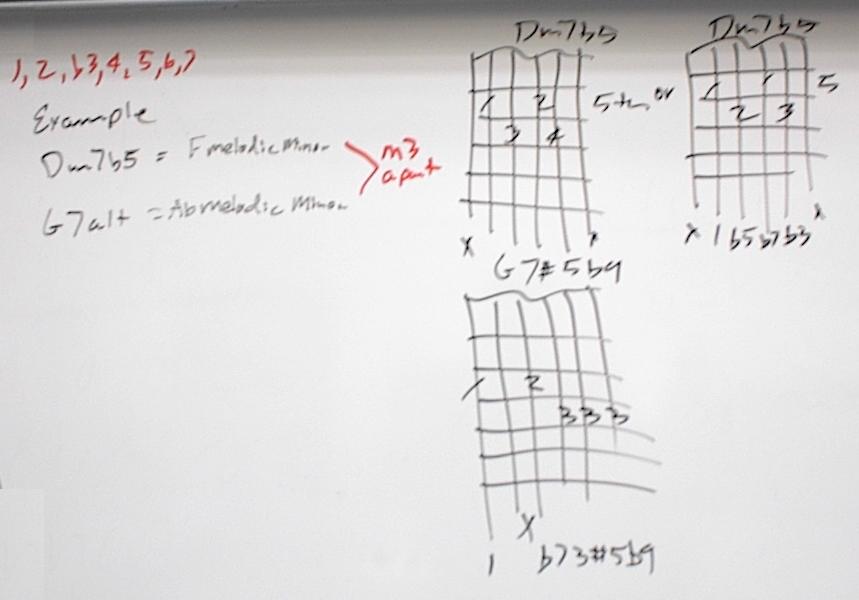 1, 2, b3, 4, 5, 6, 7
Example
Dm7b5 = F melodic Minor
G7alt = Ab melodic Minor
m3
apart
Dm7b5
1 2
3 4
5th or
x x
Dm7b5
1 1
2 3
5
x 1 b5 b7 b3 x
G7#5b9
1 2
3 3 3
x
1 b7 3 #5 b9